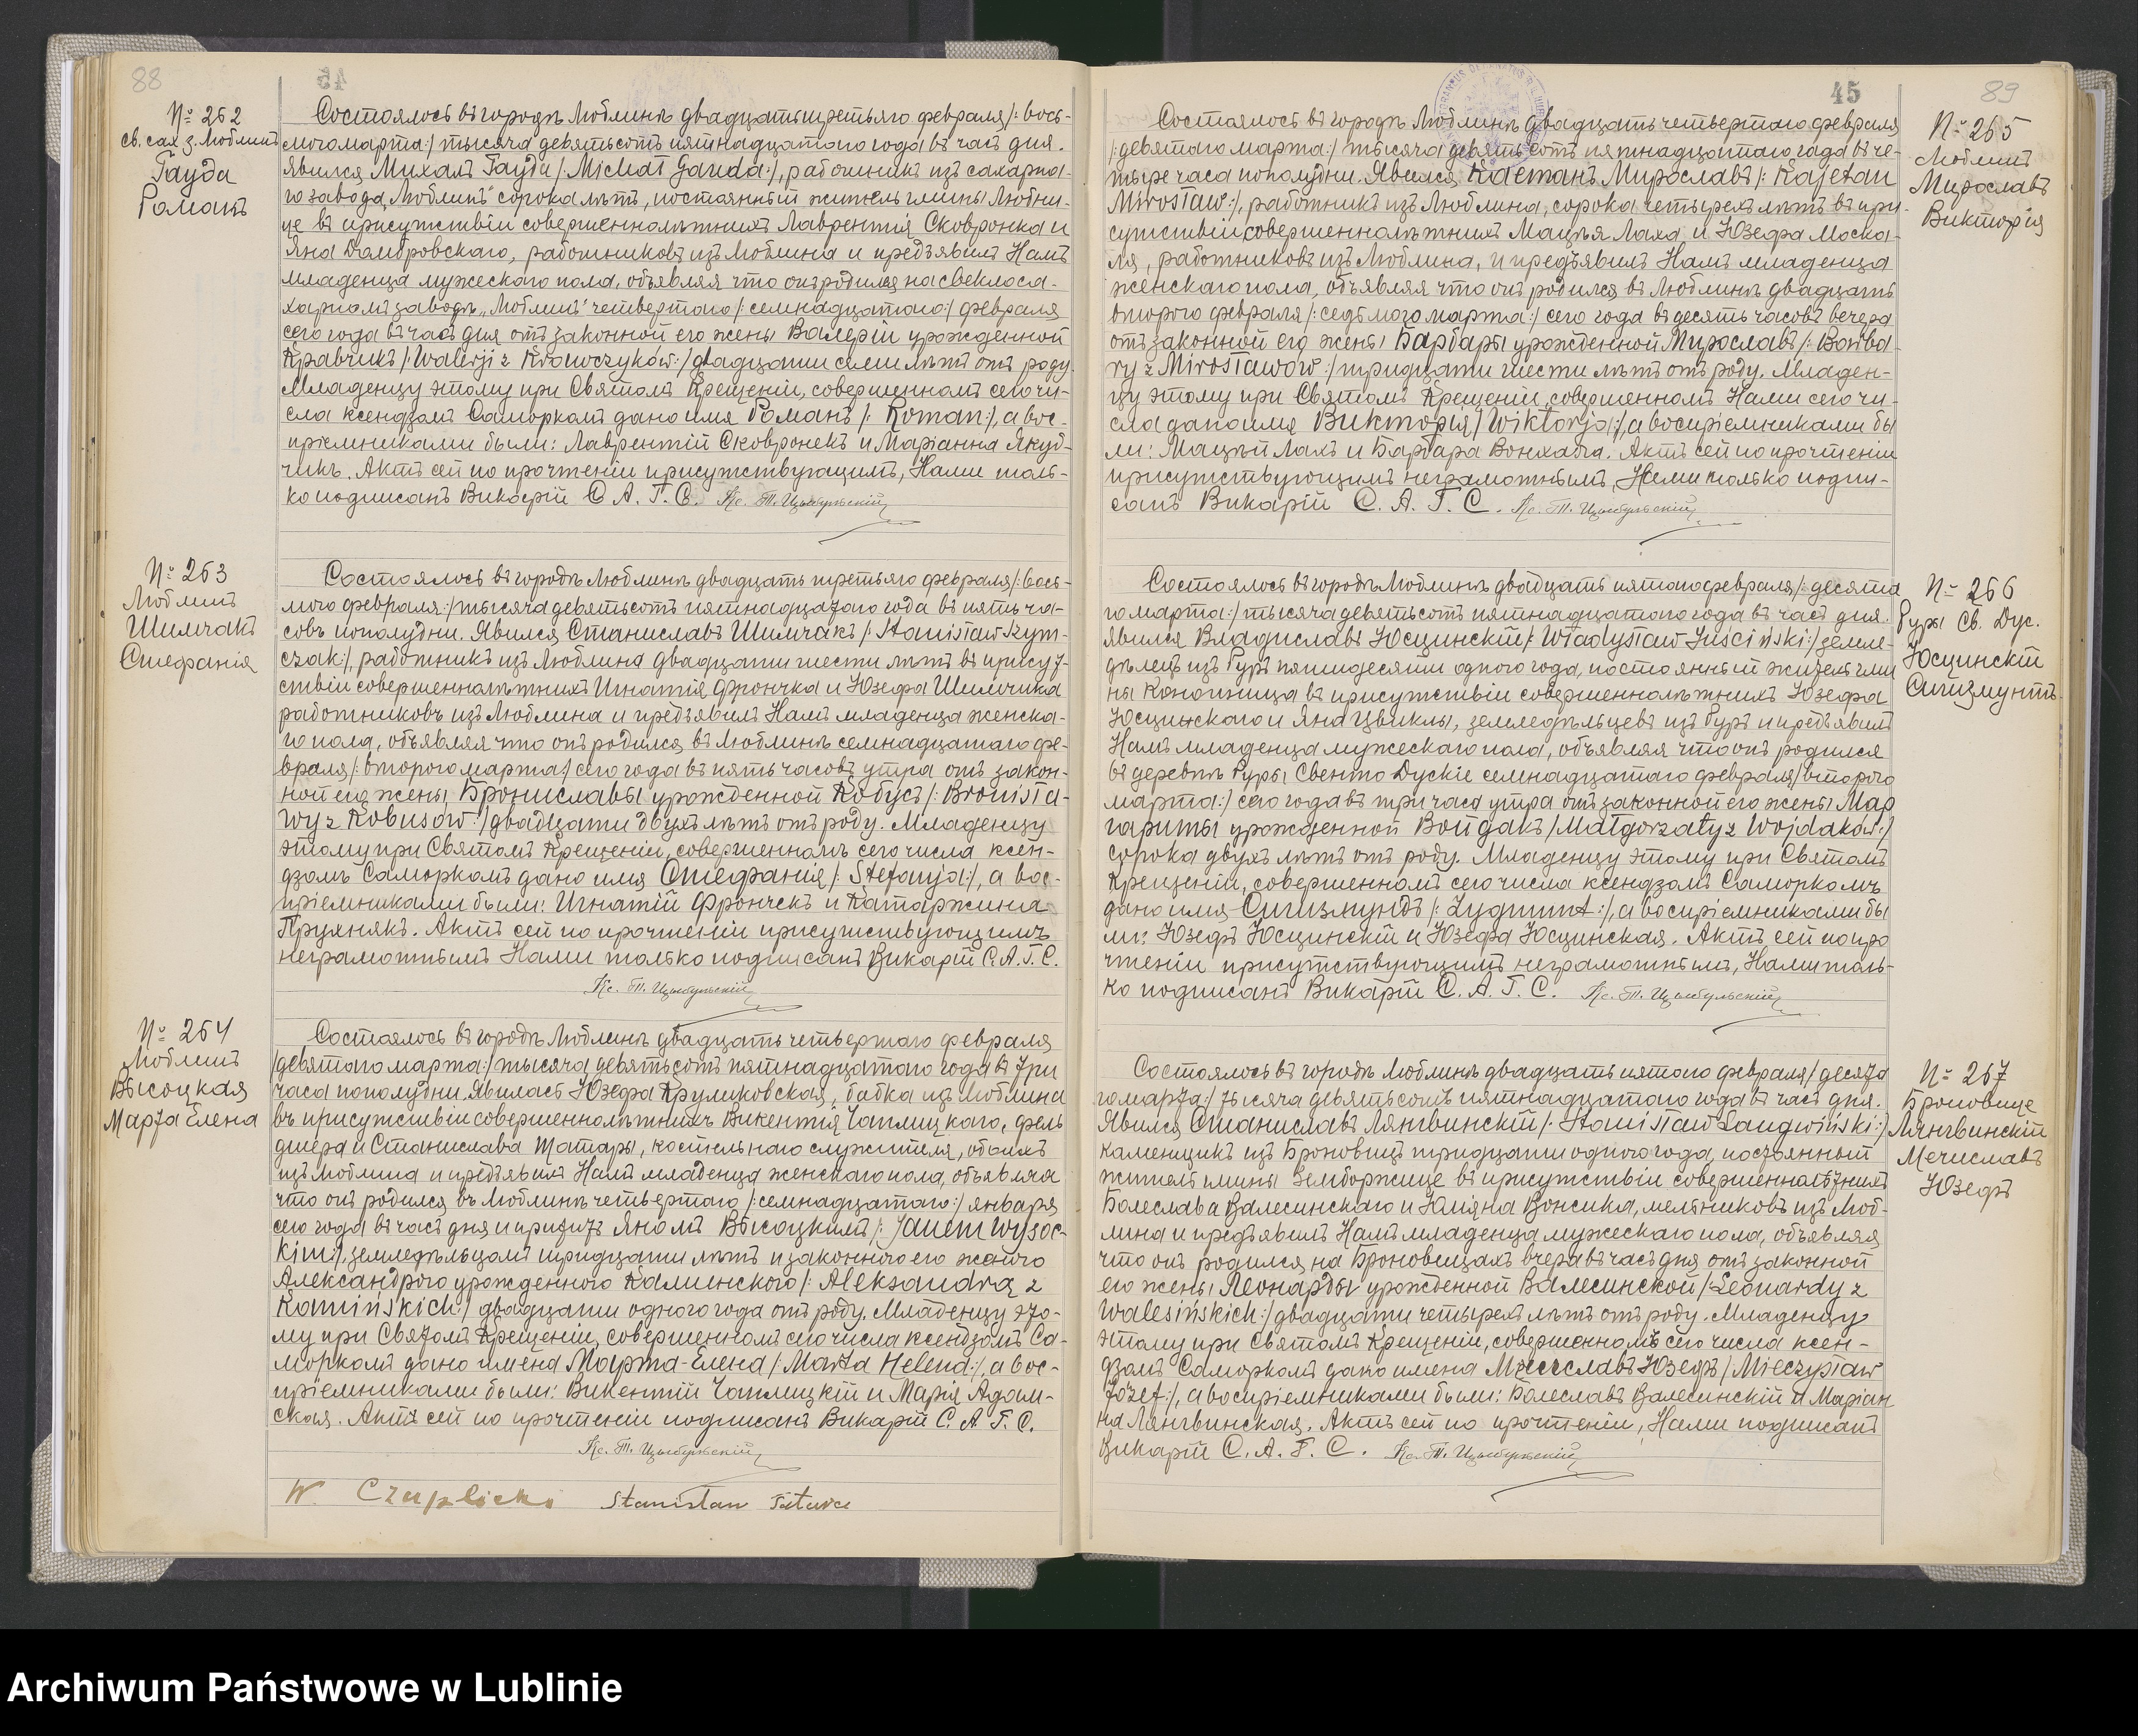 88
№ 262
св. сах. з. Люблинъ
Гауда
Романъ
Состоялось въ городѣ Люблинѣ двадцать третьяго февраля /: вось-
мого марта :/ тысяча девятьсотъ пятнадцатаго года въ часъ дня.
Явился Михалъ Гауда /: Michał Gauda :/, работникъ изъ сахарна-
го завода „Люблинъ“ сорока лѣтъ, постоянный житель гмины
це въ присутствіи совершеннолѣтнихъ Лаврентія Сковронка и
Яна Домбровскаго, работниковъ изъ Люблина и предъявилъ Намъ
младенца мужескаго пола, объявляя что онъ родился на свеклоса-
харномъ заводѣ „Люблинъ“ четвертаго /: семнадцатаго :/ февраля
сего года въ часъ дня отъ законной его жены Валеріи урожденной
Кравчикъ /: Walerji z Krawczyków :/ двадцати семи лѣтъ отъ роду.
Младенцу этому при Святомъ Крещеніи, совершенномъ сего чи-
сла ксендзомъ Саморкомъ дано имя Романъ /: Roman :/, а вос-
пріемниками были: Лаврентій Сковронекъ и Маріанна Якуб-
чикъ. Актъ сей по прочтеніи присутствующимъ, Нами толь-
ко подписанъ Викарій С. А. Г. С. Кс. Т. Цыбульскій
№ 263
Люблинъ
Шимчакъ
Стефанія
Состоялось въ городѣ Люблинѣ двадцать третьяго февраля /: вось-
мого февраля :/ тысяча девятьсотъ пятнадцатаго года въ пять ча-
совъ пополудни. Явился Станиславъ Шимчакъ /: Stanisław Szym-
czak :/, работникъ изъ Люблина двадцати шести лѣтъ въ присут-
ствіи совершеннолѣтнихъ Игнатія Фрончка и Юзефа Шимчика
работниковъ изъ Люблина и предъявилъ Намъ младенца женска-
го пола, объявляя что онъ родился въ Люблинѣ семнадцатаго фе-
враля /: второго марта :/ сего года въ пять часовъ утра отъ закон-
ной его жены Брониславы урожденной Кобусъ /: Bronisła-
wy z Kobusów :/ двадцати двухъ лѣтъ отъ роду. Младенцу
этому при Святомъ Крещеніи, совершенномъ сего числа ксен-
дзомъ Саморкомъ дано имя Стефанія /: Stefanja :/, а вос-
пріемниками были: Игнатій Фрончекъ и Катаржина
Прухнякъ. Актъ сей по прочтеніи присутствующимъ
неграмотнымъ Нами только подписанъ Викарій С. А. Г. С.
Кс. Т. Цыбульскій
№ 264
Люблинъ
Высоцкая
Марта Елена
Состоялось въ городѣ Люблинѣ двадцать четвертаго февраля
/: девятаго марта :/ тысяча девятьсотъ пятнадцатаго года въ три
часа пополудни. Явилась Юзефа Круликовская, бабка изъ Люблина
въ присутствіи совершеннолѣтнихъ Викентія Чаплицкаго, фель
дшера и Станислава Татары, костельнаго служителя, обоихъ
изъ Люблина и предъявила Намъ младенца женскаго пола, объявляя
что онъ родился въ Люблинѣ четвертаго /: семнадцатаго :/ января
сего года въ часъ дня и прижитъ Яномъ Высоцкимъ /: Janem Wysoc-
kim :/, земледѣльцомъ тридцати лѣтъ и законною его женою
Александрою урожденною Каминскою /: Aleksandrą z
Kamińskich :/ двадцати одного года отъ роду. Младенцу это-
му при Святомъ Крещеніи, совершенномъ сего числа ксендзомъ Са-
моркомъ даны имена Марта-Елена /: Marta Helena :/, а вос-
пріемниками были: Викентій Чаплицкій и Марія Адам-
ская. Актъ сей по прочтеніи подписанъ Викарій С. А. Г. С.
Кс. Т. Цыбульскій
W. Czaplicki Stanisław Tatara
45
89
№ 265
Люблинъ
Мирославъ
Викторія
Состоялось въ городѣ Люблинѣ двадцать четвертаго февраля
/: девятаго марта :/ тысяча девятьсотъ пятнадцатаго года въ че-
тыре часа пополудни. Явился Каетанъ Мирославъ /: Kajetan
Mirosław :/, работникъ изъ Люблина, сорока четырехъ лѣтъ въ при-
сутствіи совершеннолѣтнихъ Мацѣя Лаха и Юзефа Моска-
ля, работниковъ изъ Люблина, и предъявилъ Намъ младенца
женскаго пола, объявляя что онъ родился въ Люблинѣ двадцать
второго февраля /: седьмого марта :/ сего года въ десять часовъ вечера
отъ законной его жены Барбары урожденной Мирославъ /: Barba-
ry z Mirosławów :/ тридцати шести лѣтъ отъ роду. Младен-
цу этому при Святомъ Крещеніи, совершенномъ Нами сего чи-
сла дано имя Викторія /: Wiktorja :/, а воспріемниками бы
ли: Мацѣй Лахъ и Барбара Вонхала. Актъ сей по прочтеніи
присутствующимъ неграмотнымъ, Нами только подпи-
санъ Викарій С. А. Г. С. Кс. Т. Цыбульскій
№ 266
Руры Св. Дус.
Юсцинскій
Сигизмундъ
Состоялось въ городѣ Люблинѣ двадцать пятаго февраля /: десята
го марта :/ тысяча девятьсотъ пятнадцатаго года въ часъ дня.
Явился Владиславъ Юсцинскій /: Władysław Juściński :/ земле-
дѣлецъ изъ Руръ пятидесяти одного года, постоянный житель гми
ны Конопница въ присутствіи совершеннолѣтнихъ Юзефа
Юсцинскаго и Яна Цвиклы, земледѣльцевъ изъ Руръ и предъявилъ
Намъ младенца мужескаго пола, объявляя что онъ родился
въ деревнѣ Руры Свенто Дускіе семнадцатаго февраля /: второго
марта :/ сего года въ три часа утра отъ законной его жены Мар
гариты урожденной Войдакъ /: Małgorzaty z Wojdaków :/
сорока двухъ лѣтъ отъ роду. Младенцу этому при Святомъ
Крещеніи, совершенномъ сего числа ксендзомъ Саморкомъ
дано имя Сигизмундъ /: Zygmunt :/, а воспріемниками бы
ли: Юзефъ Юсцинскій и Юзефа Юсцинская. Актъ сей по про
чтеніи присутствующимъ неграмотнымъ, Нами толь-
ко подписанъ Викарій С. А. Г. С. Кс. Т. Цыбульскій
№ 267
Броновице
Лянгвинскій
Мечиславъ
Юзефъ
Состоялось въ городѣ Люблинѣ двадцать пятаго февраля /: десята
го марта :/ тысяча девятьсотъ пятнадцатаго года въ часъ дня.
Явился Станиславъ Лянгвинскій /: Stanisław Langwiński :/
каменщикъ изъ Броновицъ тридцати одного года, постоянный
житель гмины Земборжице въ присутствіи совершеннолѣтнихъ
Болеслава Валесинскаго и Юліяна Вонсика, мельниковъ изъ Люб-
лина и предъявилъ Намъ младенца мужескаго пола, объявляя
что онъ родился на Броновицахъ вчера въ часъ дня отъ законной
его жены Леонарды урожденной Валесинской /: Leonardy z
Walesińskich :/ двадцати четырехъ лѣтъ отъ роду. Младенцу
этому при Святомъ Крещеніи, совершенномъ сего числа ксен-
дзомъ Саморкомъ даны имена Мечиславъ Юзефъ /: Mieczysław
Józef :/, а воспріемниками были: Болеславъ Валесинскій и Маріан
на Лянгвинская. Актъ сей по прочтеніи, Нами подписанъ
Викарій С. А. Г. С. Кс. Т. Цыбульскій
Archiwum Państwowe w Lublinie